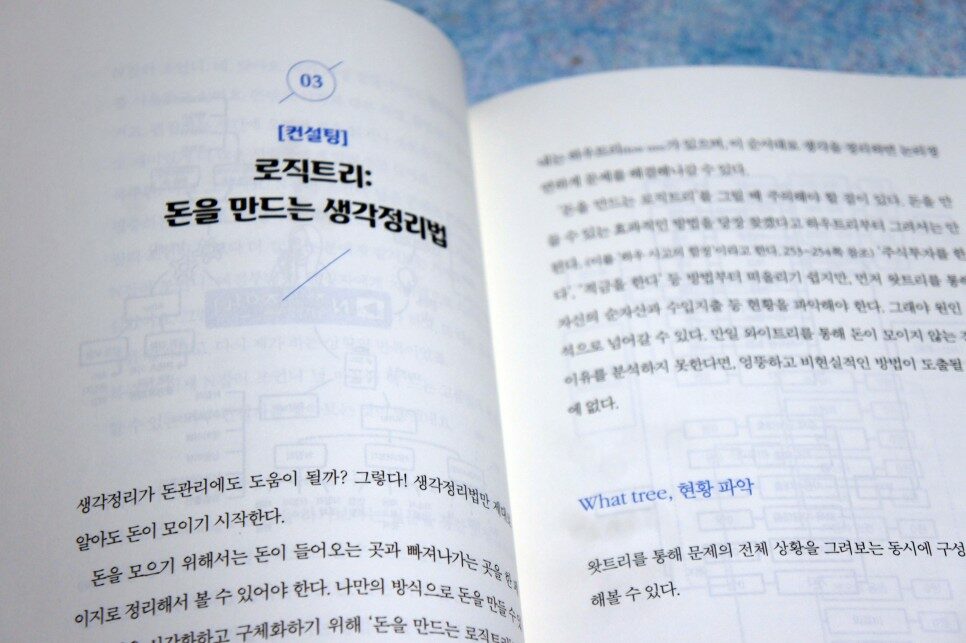 03
[컨설팅]
로직트리:
돈을 만드는 생각정리법
생각정리가 돈관리에도 도움이 될까? 그렇다! 생각정리법만
알아도 돈이 모이기 시작한다.
돈을 모으기 위해서는 돈이 들어오는 곳과 빠져나가는 곳을 한
이지로 정리해서 볼 수 있어야 한다. 나만의 방식으로 돈을 만들 수
시각화하고 구체화하기 위해 '돈을 만드는 로직트리'
내는 하우트리How tree가 있으며, 이 순서대로 생각을 정리하면 논리정
연하게 문제를 해결해나갈 수 있다.
'돈을 만드는 로직트리'를 그릴 때 주의해야 할 점이 있다. 돈을 만
들 수 있는 효과적인 방법을 당장 찾겠다고 하우트리부터 그려서는 안
된다. (이를 '하우 사고의 함정'이라고 한다. 253~254쪽 참조) '주식투자를 한
다', '적금을 한다' 등 방법부터 떠올리기 쉽지만, 먼저 왓트리를 통해
자신의 순자산과 수입지출 등 현황을 파악해야 한다. 그래야 원인
석으로 넘어갈 수 있다. 만일 와이트리를 통해 돈이 모이지 않는
이유를 분석하지 못한다면, 엉뚱하고 비현실적인 방법이 도출될
에 없다.
What tree, 현황 파악
왓트리를 통해 문제의 전체 상황을 그려보는 동시에 구성
해볼 수 있다.